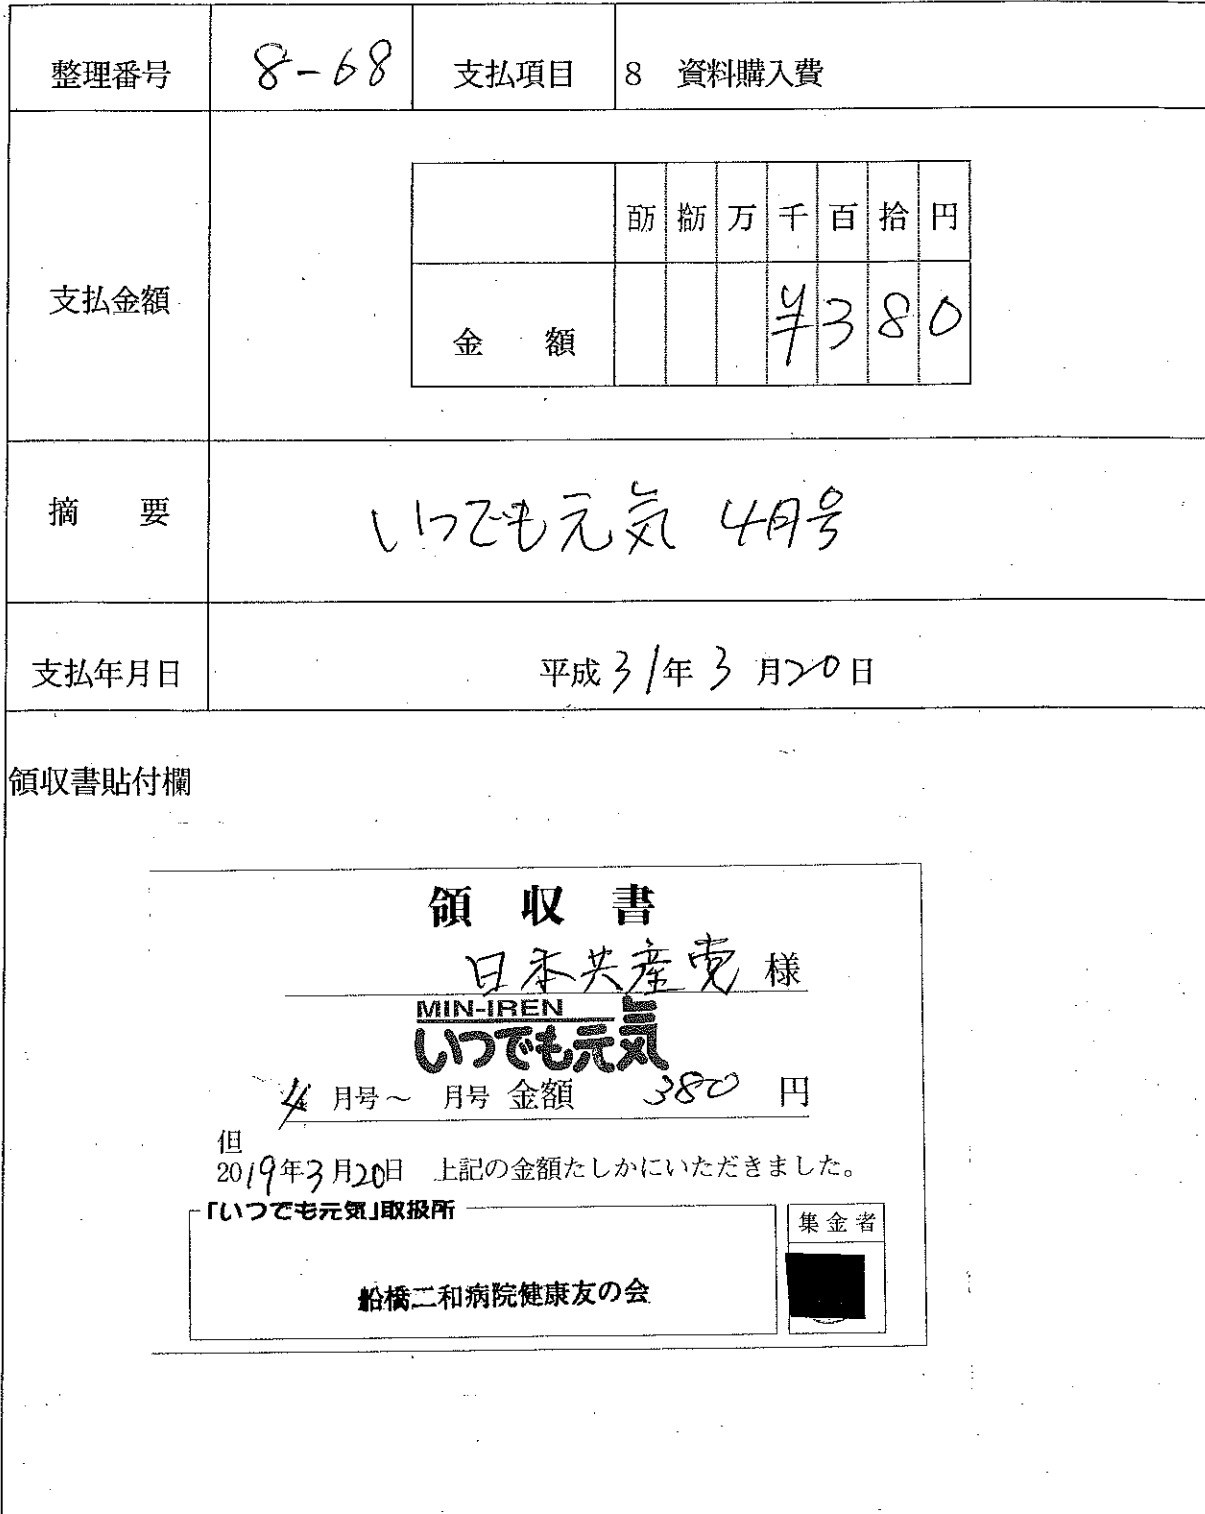 整理番号 8-68 支払項目 8 資料購入費
百万 拾万 万 千 百 拾 円
支払金額
金 額 ¥380
摘 要 いつでも元気 4月号
支払年月日 平成31年3月20日
領収書貼付欄
領収書
日本共産党 様
MIN-IREN
いつでも元気
4月号～ 月号 金額 380 円
但
2019年3月20日 上記の金額たしかにいただきました。
「いつでも元気」取扱所
集金者
船橋二和病院健康友の会